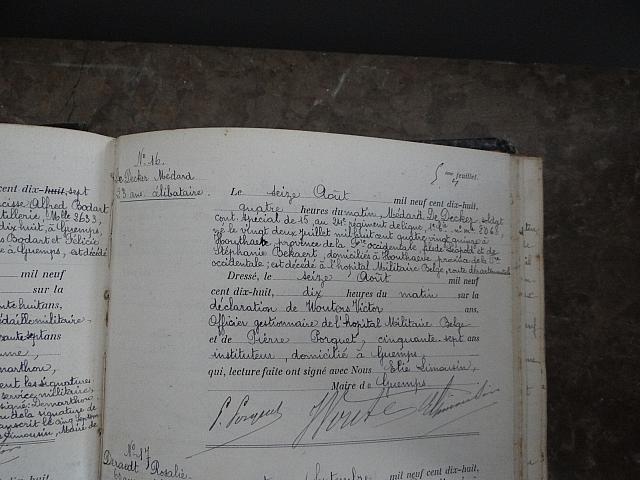 cent dix-huit, sept
cisse Alfred Bodart
tillerie, Mle 2633,
dix huit, à Guemps,
s Bodart et Félicie
e à Guemps, est décédé
mil neuf
sur la
ante huit ans,
édaille militaire
sept ans
marthon,
ent les signatures
service militaire,
signé: Demarthon
de la signature de
Limousin, Maire de
N° 16.
De Decker Médard
23 ans. célibataire.
5me feuillet.
Le seize Août mil neuf cent dix-huit,
quatre heures du matin, Médard De Decker, soldat
cont. spécial de 15 au 24e régiment de ligne
né le vingt deux Juillet mil huit cent quatre vingt quinze à
Houthave, province de la Fre occidentale, fils de Léopold et de
Stéphanie Bekaert, domiciliés à Houthave, province de la Fre
occidentale; est décédé à l'hôpital Militaire Belge, route départementale
Dressé, le seize Août mil neuf
cent dix-huit, dix heures du matin sur la
déclaration de Wouters Victor ans,
Officier gestionnaire de l'hôpital Militaire Belge
et de Pierre Porquet, cinquante sept ans
instituteur, domicilié à Guemps,
qui, lecture faite ont signé avec Nous Elie Limousin,
Maire de Guemps
P. Porquet
N° 17
Rosalie
mil neuf cent dix-huit,